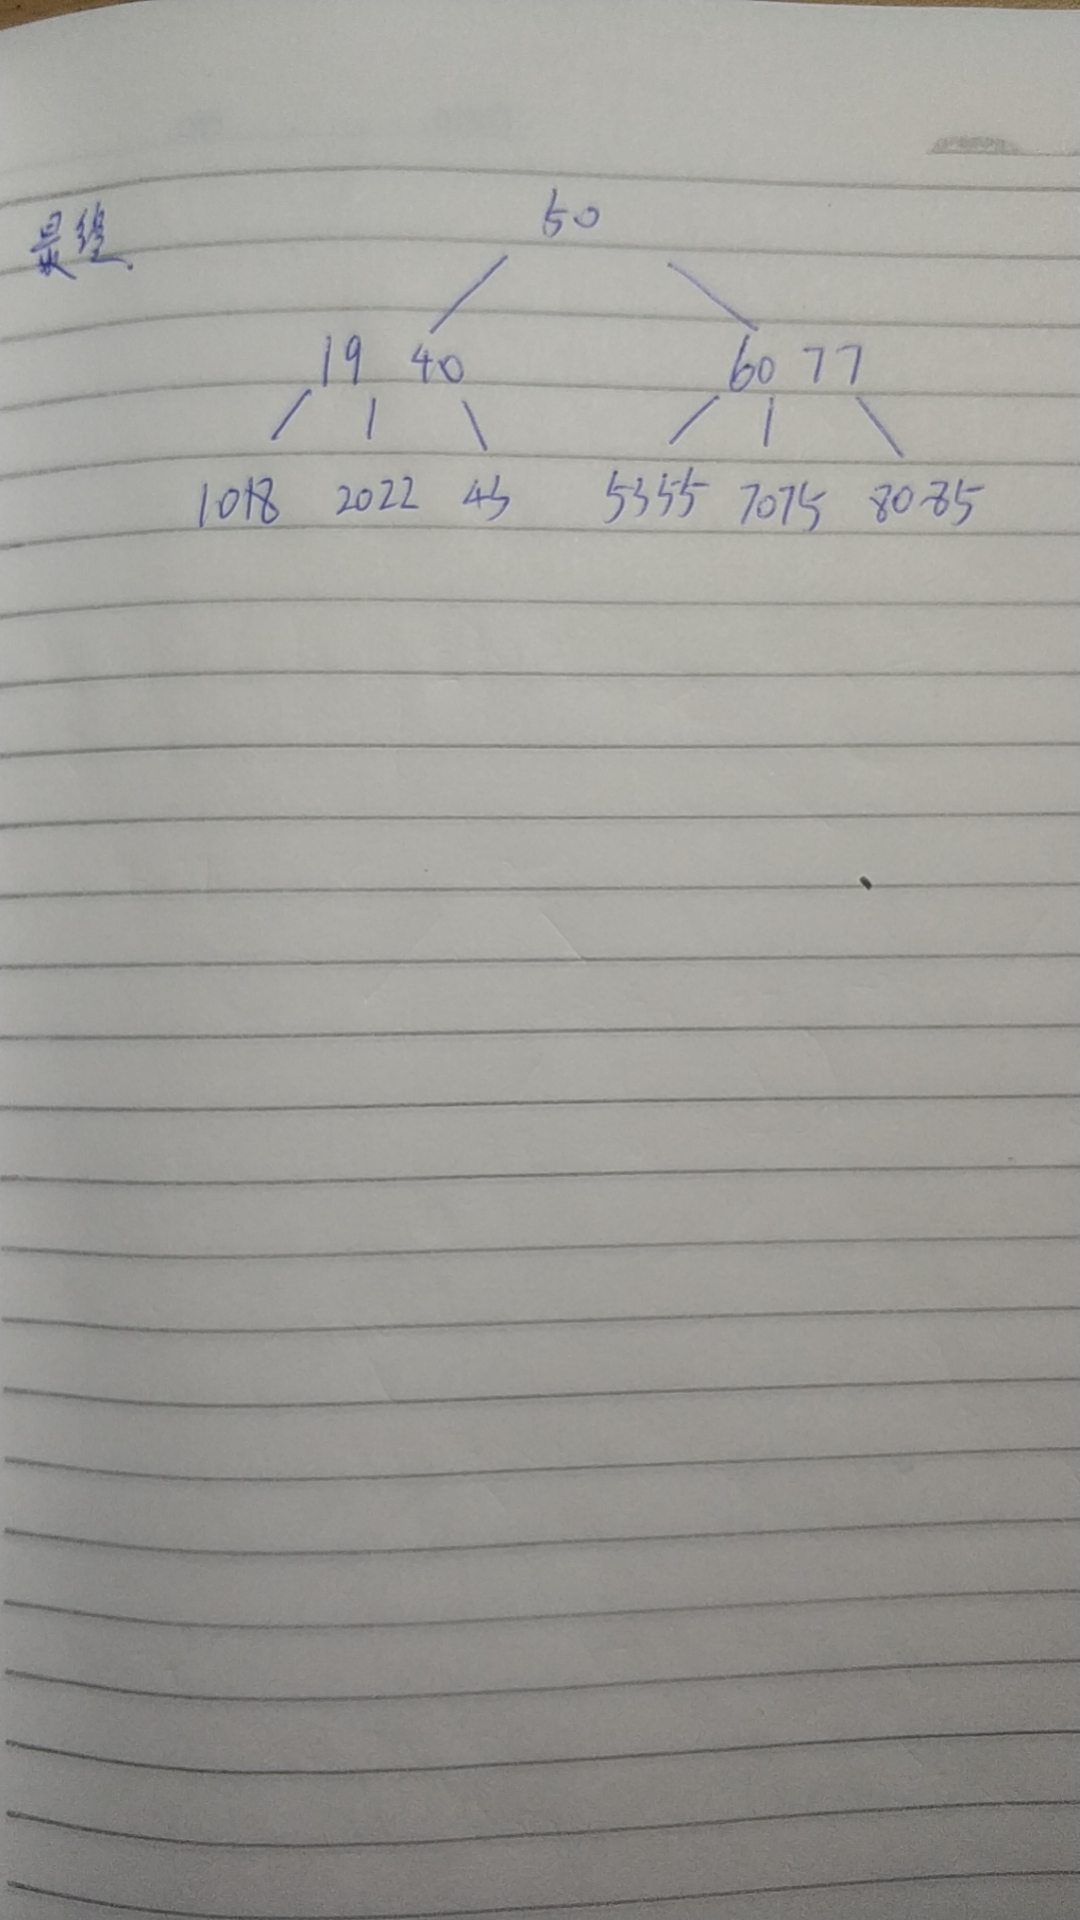 最终.
50
19 40 60 77
10 18 20 22 45 53 55 70 75 80 85